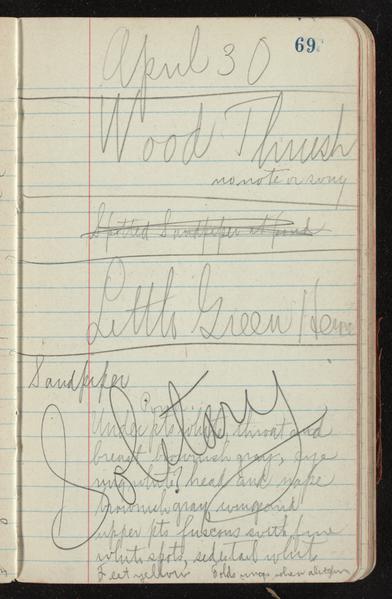 69
April 30
Wood Thrush
no note or song
Spotted Sandpiper at pond
Little Green Heron
Sandpiper
Solitary
Under pts white, throat and
breast brownish gray, eye
ring white, head and nape
brownish gray, wings and
upper pts fuscous with fine
white spots, sides tail white
Feet yellow Folds wings when alights